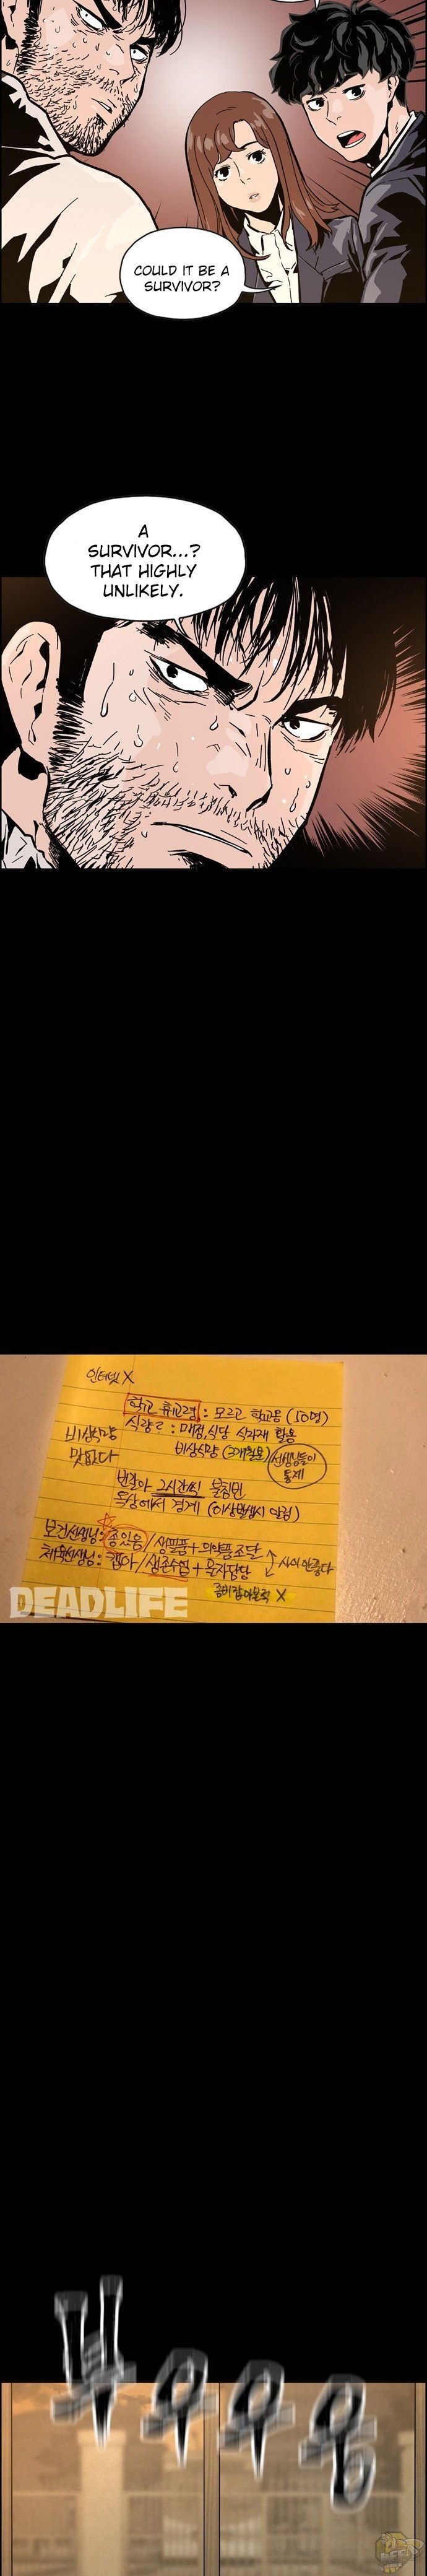 COULD IT BE A
SURVIVOR?
A
SURVIVOR...?
THAT HIGHLY
UNLIKELY.
인터넷 X
학교 휴교령 : 모르고 학교옴 (50명)
식량은 : 매점, 식당 식자재 활용
비상식량
맛없다
비상식량 (3개월분)
선생님들이
통제
번갈아 2시간씩 불침번
옥상에서 경계 (이상발생시 알림)
보건선생님: 총있음 / 생필품 + 의약품 조달
체육선생님: / 생존수업 + 옥자담당
사이 안좋다
DEADLIFE